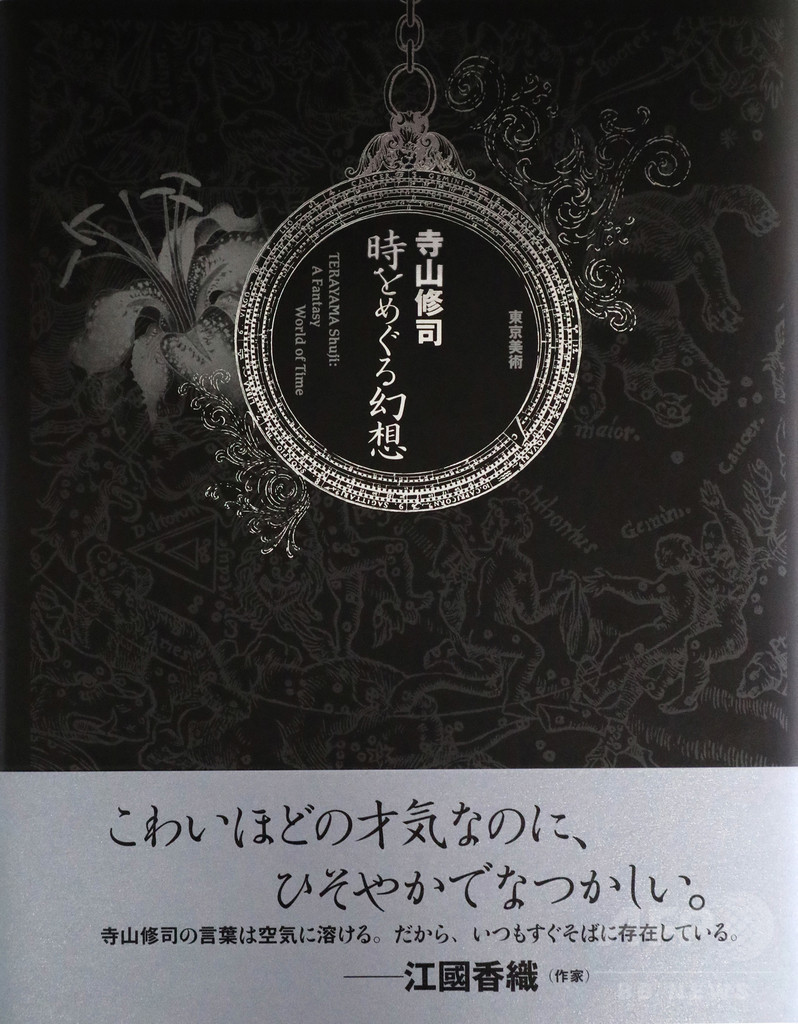 東京美術
寺山修司
時をめぐる幻想
TERAYAMA Shuji:
A Fantasy
World of Time
maior.
Cancer.
Gemini.
こわいほどの才気なのに、
ひそやかでなつかしい。
寺山修司の言葉は空気に溶ける。だから、いつもすぐそばに存在している。
——江國香織(作家)
BP NEWS